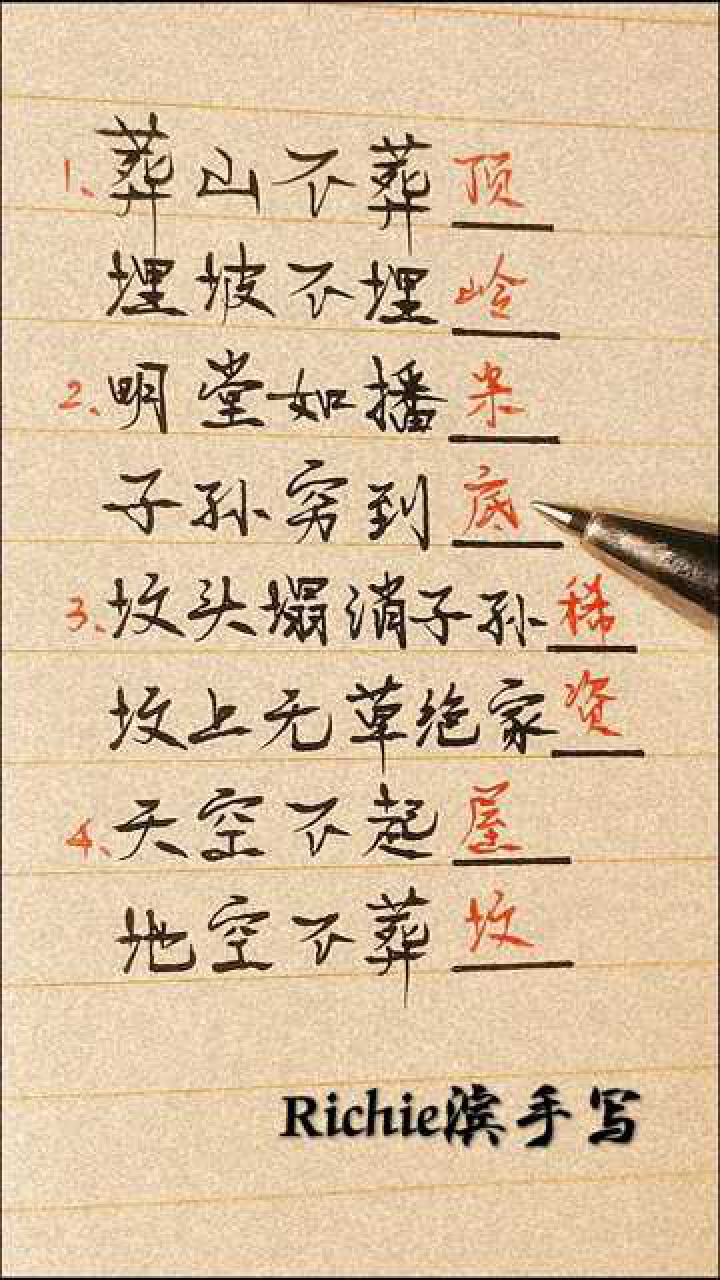 1、葬山不葬顶
埋坡不埋岭
2、明堂如播米
子孙穷到底
3、坟头塌消子孙稀
坟上无草绝家资
4、天空不起屋
地空不葬坟
Richie滨手写